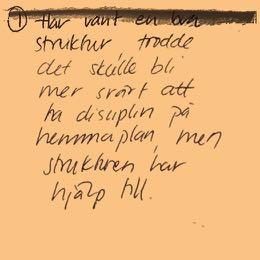 ① Har varit en bra
struktur, trodde
det skulle bli
mer svårt att
ha disciplin på
hemmaplan, men
strukturen har
hjälp till.